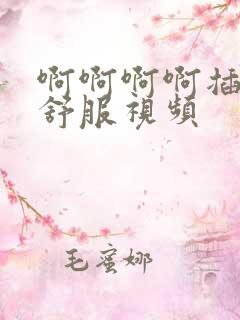 啊啊啊啊插
舒服視頻
毛蜜娜